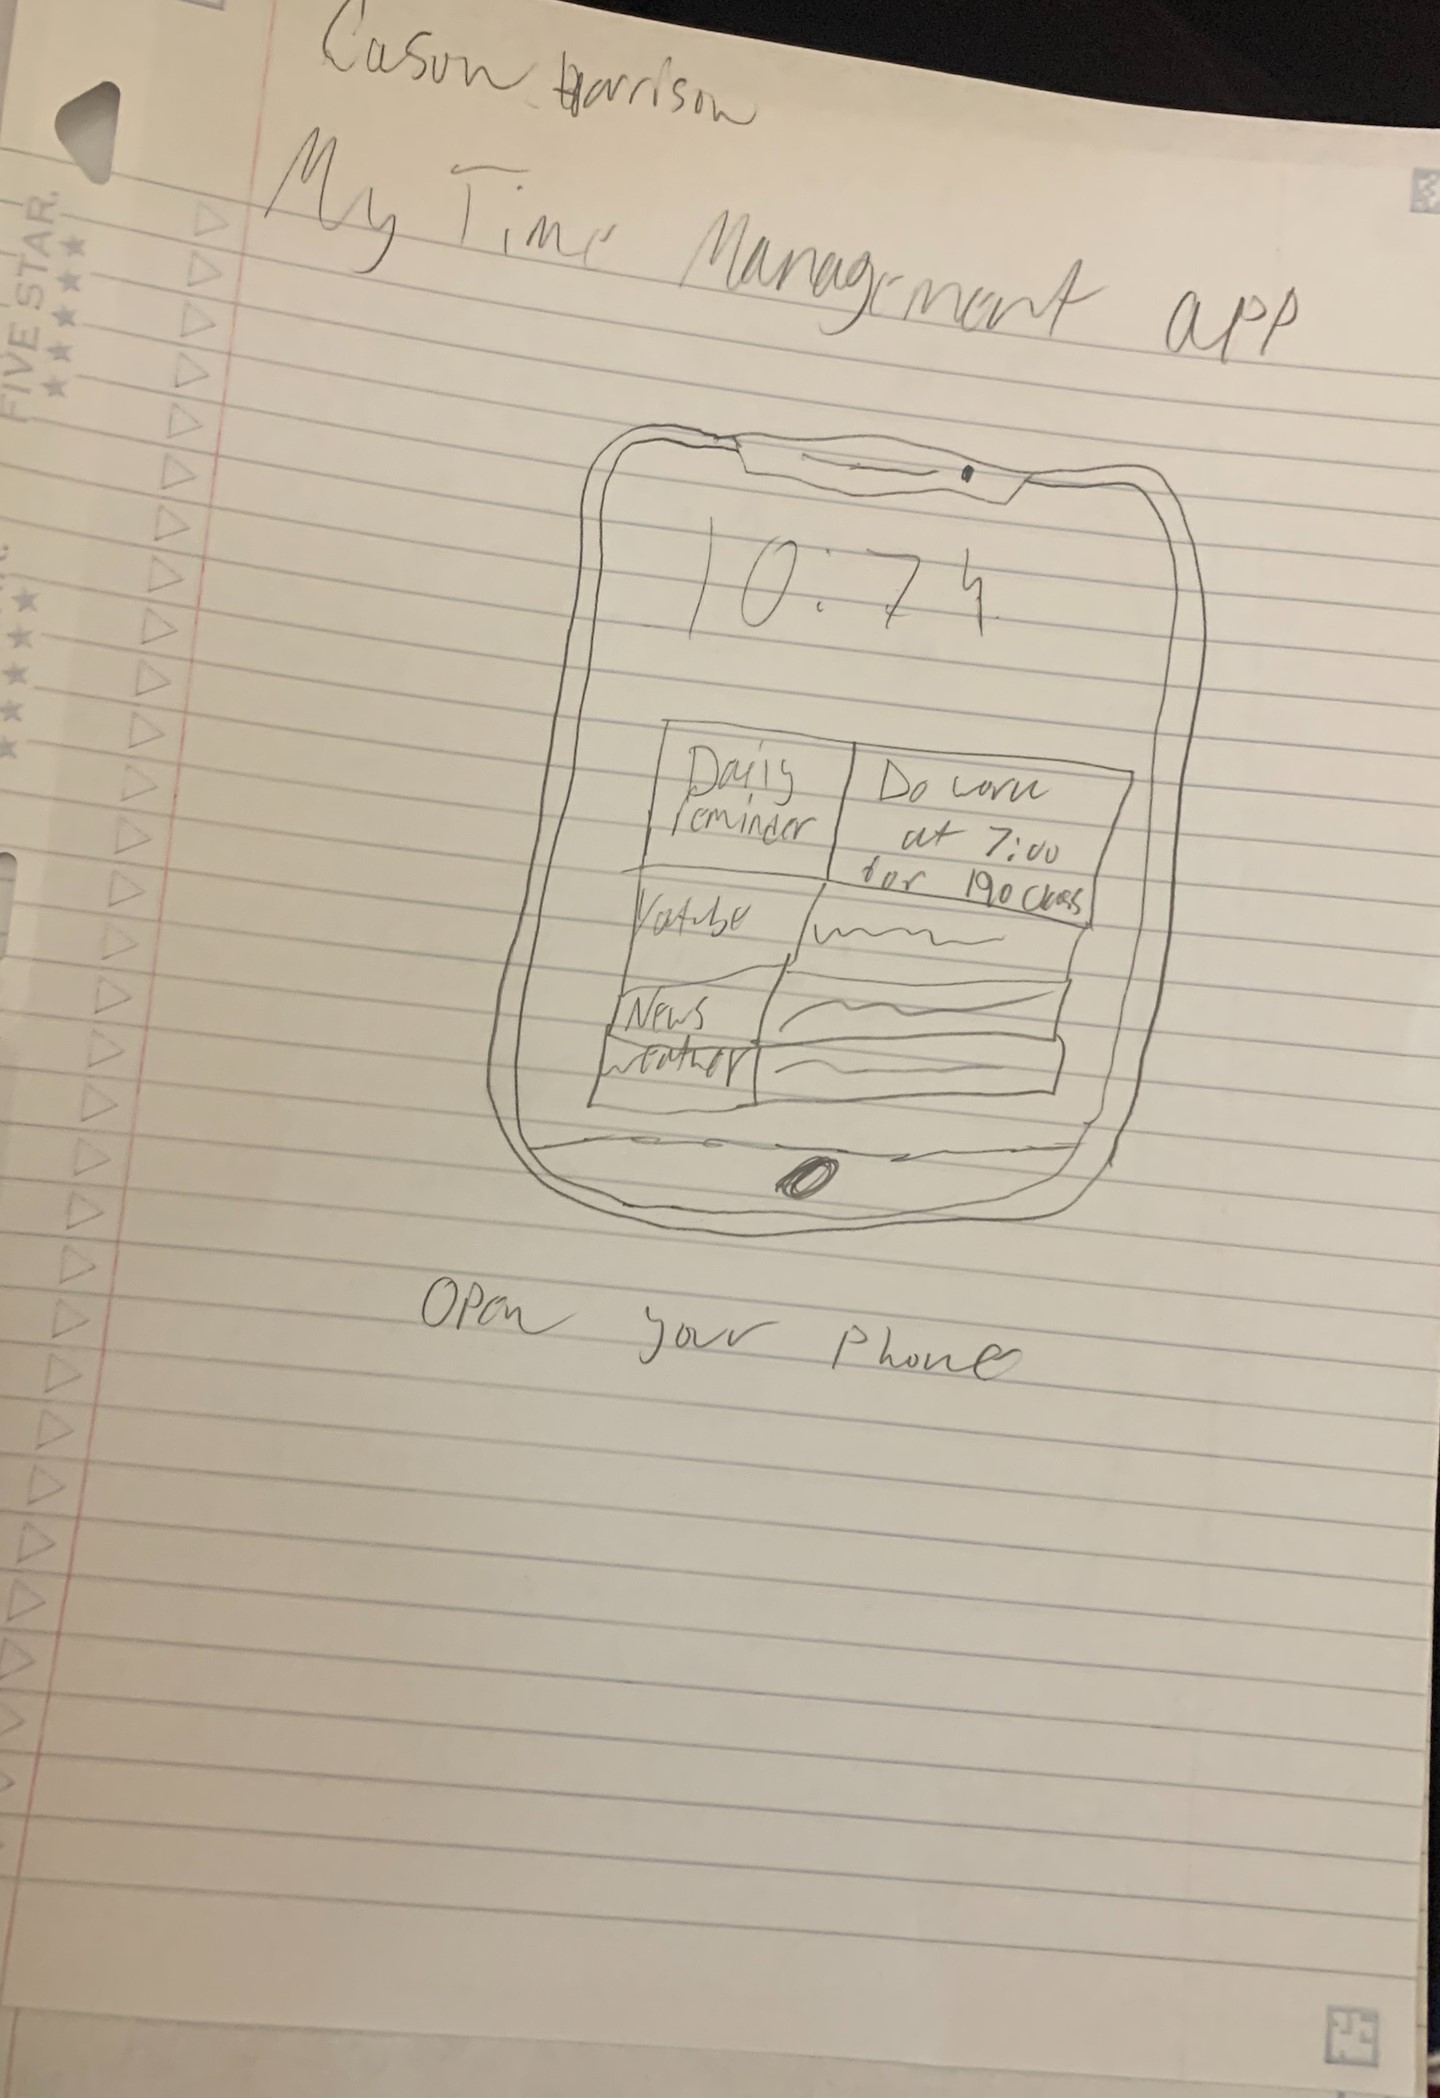 Cason Harrison
My Time Management app
10:74
Daily
reminder
Do work
at 7:00
for 190 class
Yotube
News
weather
Open your phone
FIVE STAR